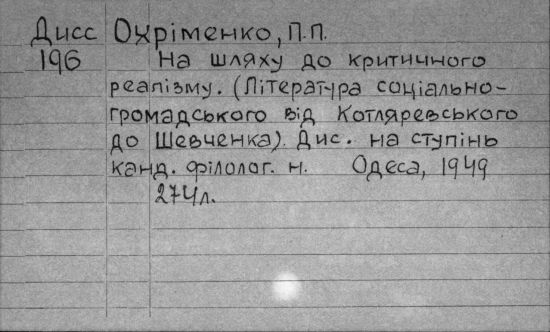 Дисс Охріменко, П.П.
196 На шляху до критичного
реалізму. (Література соціально-
громадського від Котляревського
до Шевченка). Дис. на ступінь
канд. філолог. н. Одеса, 1949
274л.